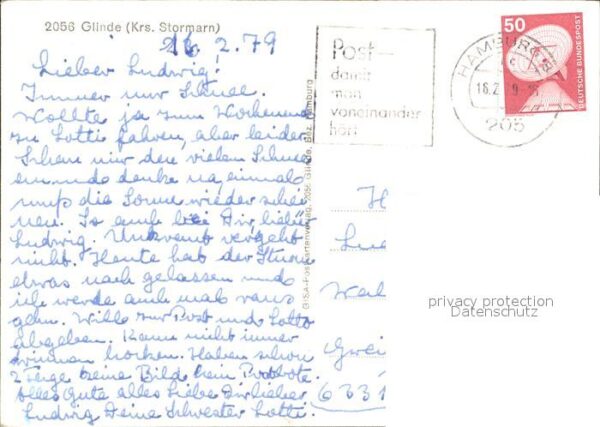 2056 Glinde (Krs. Stormarn)
16.2.79
Lieber Ludwig!
Immer nur Schnee.
Wollte ja zum Wochenend
zu Lotti fahren, aber leider
Sehen wir den vielen Schnee
und denke na, einmal
muß die Sonne wieder schei
nen. So auch bei Dir lieber
Ludwig. Unkraut vergeht
nicht. Heute hat der Sturm
etwas nach gelassen und
ich werde auch mal raus
gehn. Will zur Post und Lotto
abgeben. Kann nicht immer
drinnen hocken. Haben schon
2 Tage keine Bild kein
Alles Gute alles Liebe Dir lieber
Ludwig Deine Schwester Lotti.
GISA-Postkartenverlag, 2056 Glinde, Bez. Hamburg
Post —
damit
man
voneinander
hört
HAMBURG
16.2.79-18
205
50
DEUTSCHE BUNDESPOST
H
Lu
Weil
6331
privacy protection
Datenschutz